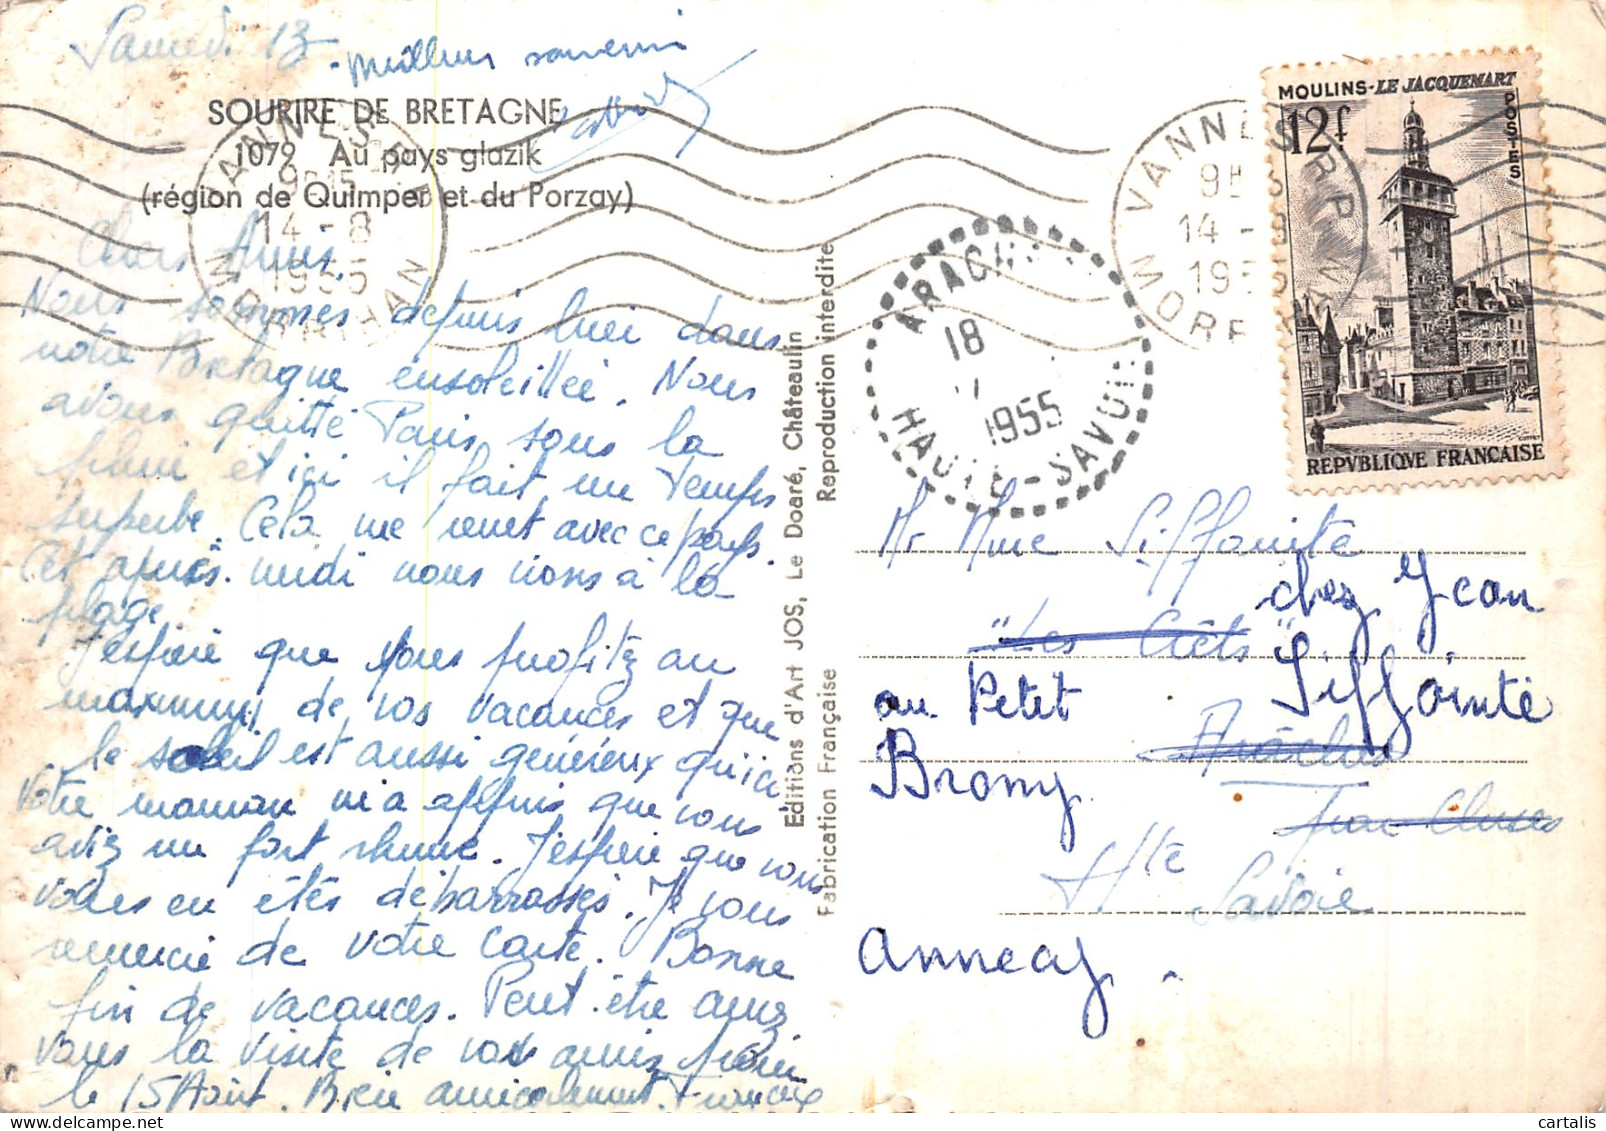 Samedi 13
Meilleur souvenir
SOURIRE DE BRETAGNE
1079 Au pays glazik
(région de Quimper et du Porzay)
VANNES R.P.
14-8
1955
MORBIHAN
Chers Amis.
Nous sommes depuis hier dans
notre Bretagne ensoleillée. Nous
avons quitté Paris sous la
pluie et ici il fait un temps
superbe. Cela me remet avec ce pays.
Cet après-midi nous irons à la
plage.
J'espère que vous profitez au
maximum de vos vacances et que
le soleil est aussi généreux qu'ici
Votre maman m'a appris que vous
aviez un fort rhume. J'espère que vous
vous en êtes débarrassés. Je vous
remercie de votre carte. Bonne
fin de vacances. Peut-être aurez
vous la visite de vos amis pour
le 15 Août. Bien amicalement. Françoise
Editions d'Art JOS, Le Doaré, Châteaulin
Reproduction interdite
Fabrication Française
ARACH
18
1955
HAUTE-SAVOIE
VANNES R.P.
14-8
1955
MORBIHAN
MOULINS-LE JACQUEMART
12f
POSTES
REPVBLIQVE FRANCAISE
Mr Mme Siffointe
"Les Crêts"
chez Jean
Siffointe
au Petit
Brony
Arâches
par Cluses
Hte
Savoie
Annecy.
cartalis